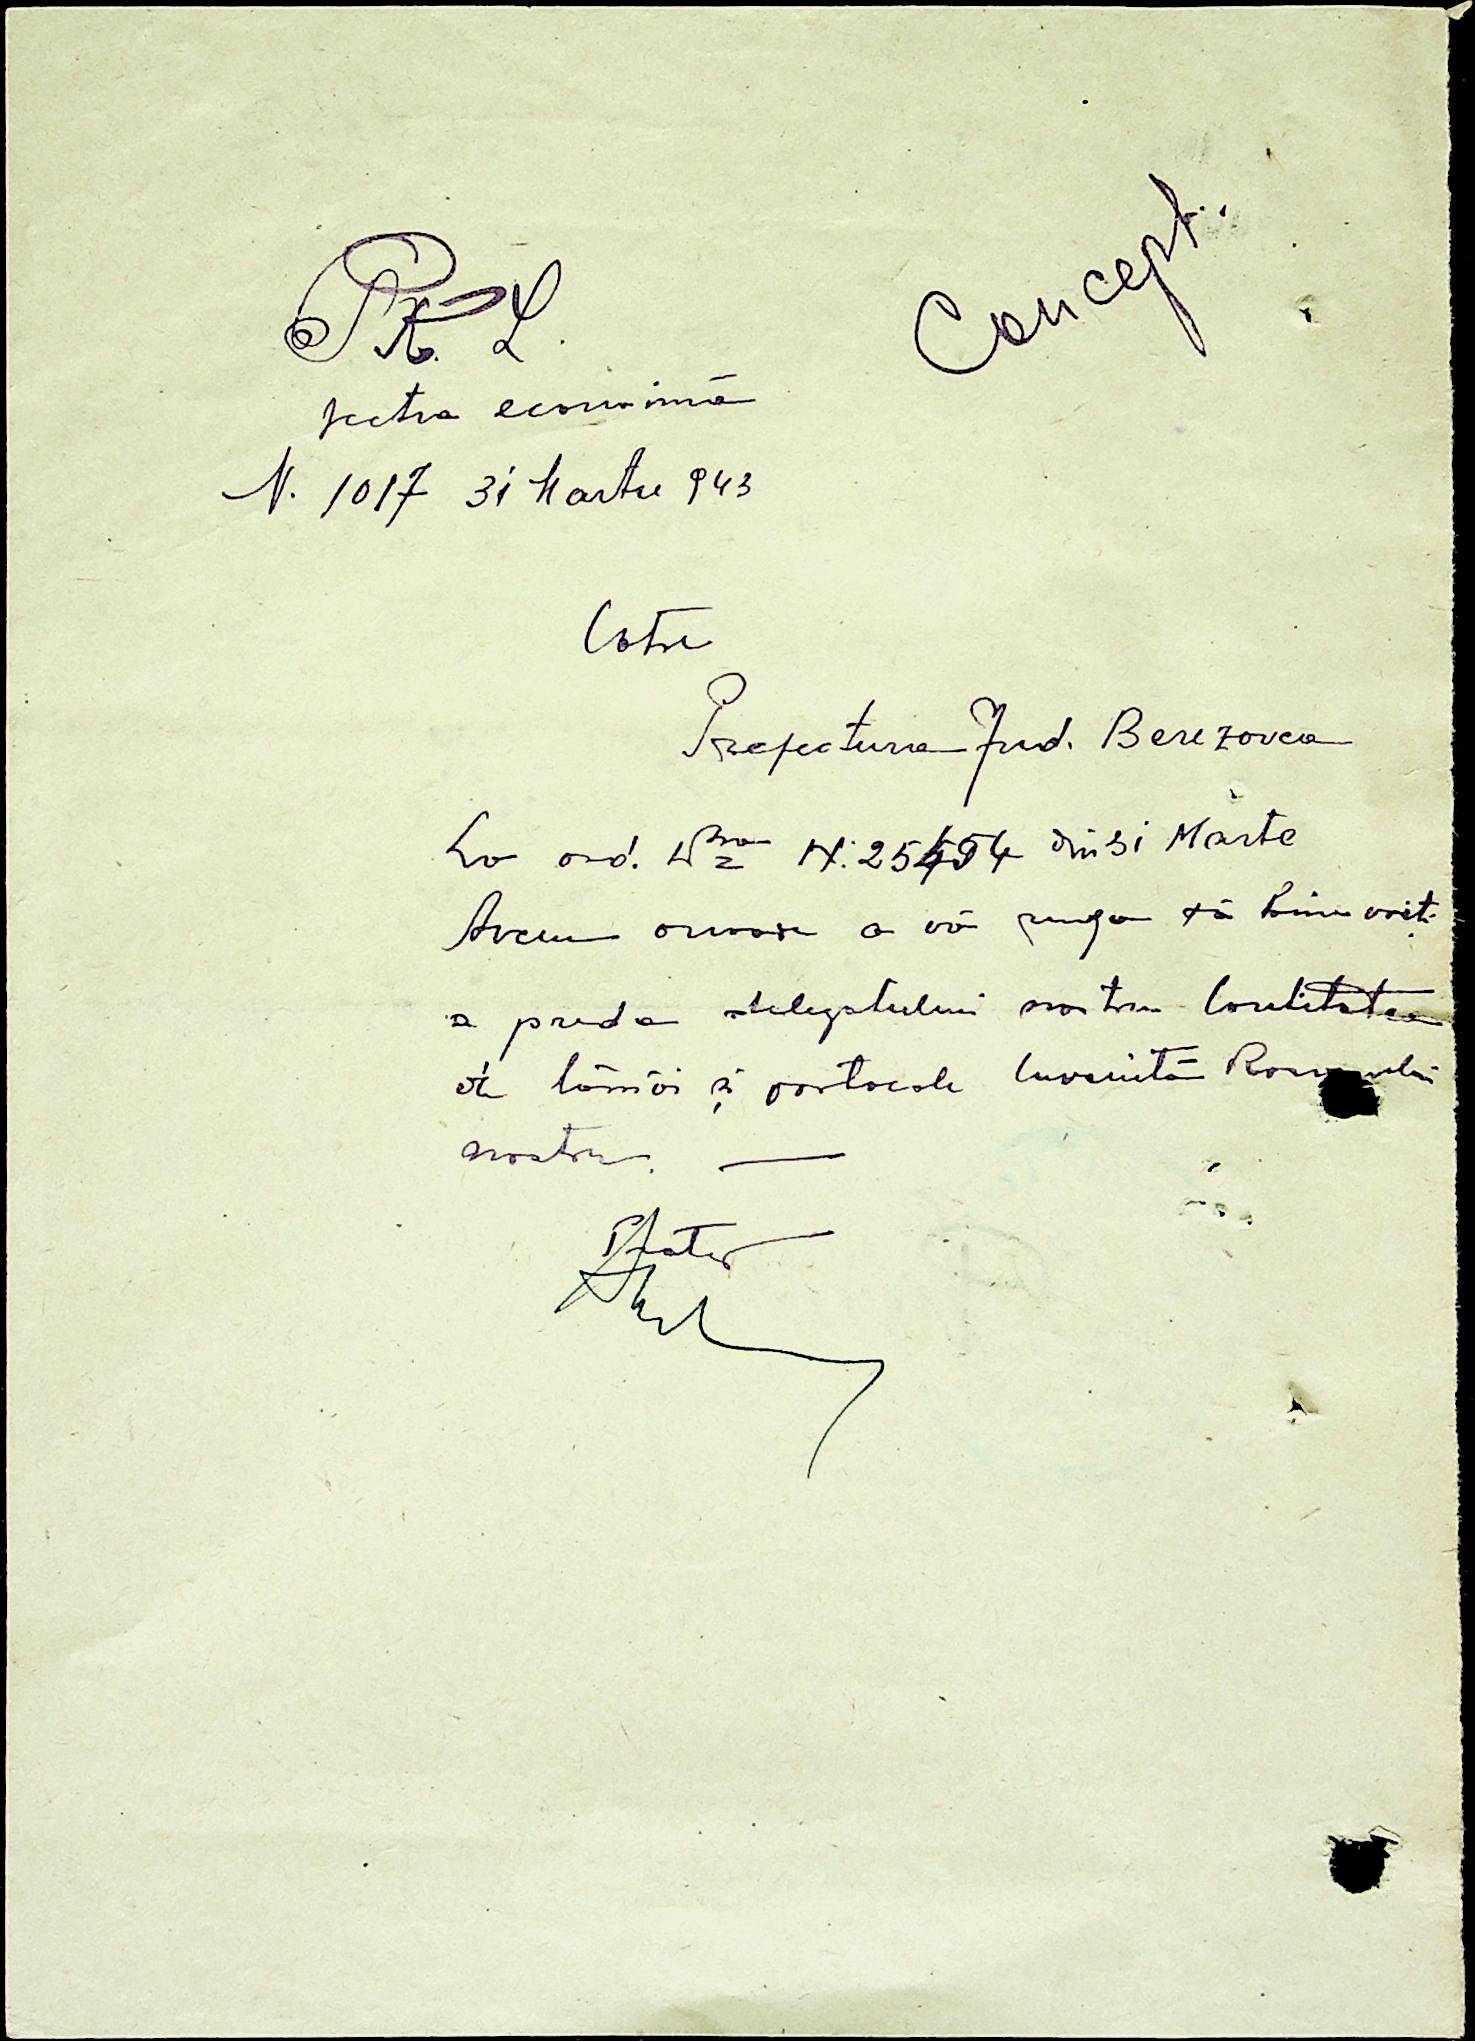 Concept.
P. R. L.
secția economică
N. 1017 31 Martie 943
Către
Prefectura Jud. Berezovca
La ord. Dvs N. 25454 din 31 Martie
Avem onoare a vă ruga să binevoiți
a preda delegatului nostru Cantitatea
de lămâi și portocale cuvenită Raionului
nostru.
Pretor